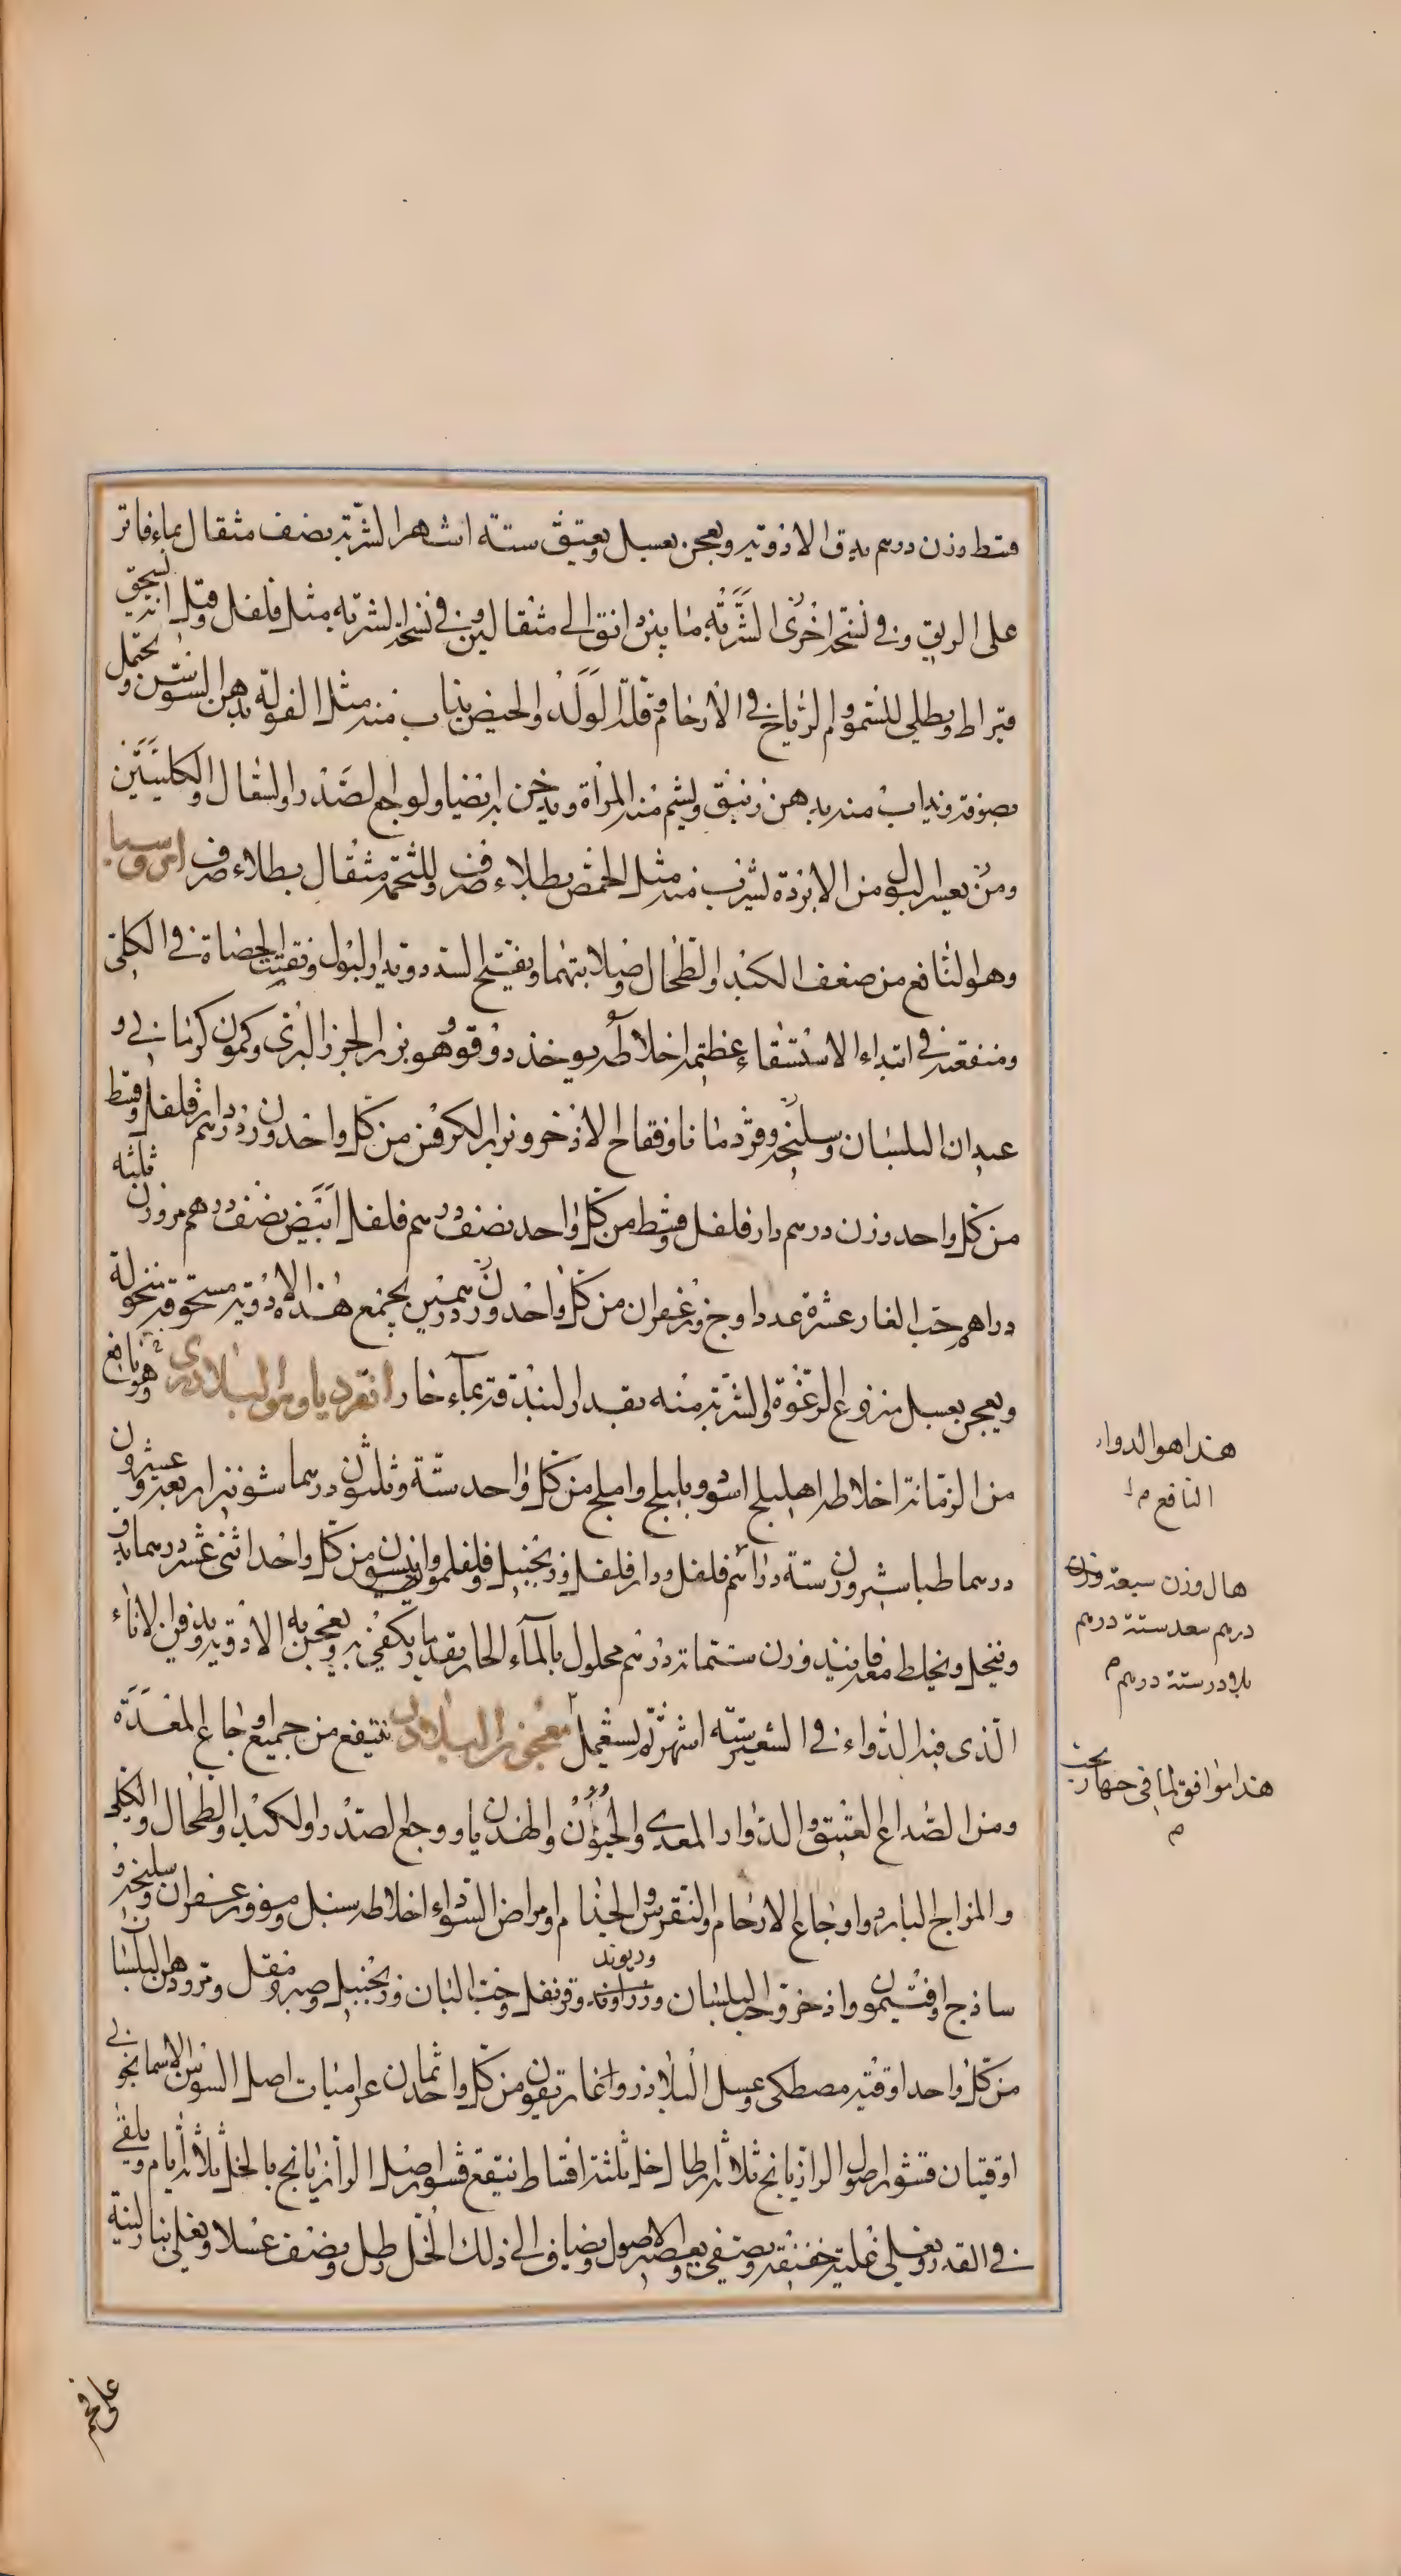 قسط وزن درهم يدق الادوية ويعجن بعسل ويعتق ستة اشهر الشربة نصف مثقال بماء فاتر
على الريق وفي نسخة اخرى الشربة ما بين دانق الى مثقالين وفي نسخة الشربة مثل فلفل وقيل انه يسحق
قيراط ويطلى للسموم والرياح في الارحام وقلة الولد والحيض يذاب منه مثل الفولة بدهن السوسن ويحتمل
بصوفة ويذاب منه بدهن زنبق ويشم منه المرأة ويدخن به ايضا ولوجع الصدر والسعال والكليتين
ومن بعسر البول من الابردة يشرب منه مثل الحمص بطلاء صرف وللتخمة مثقال بطلاء صرف امروسيا
وهو النافع من ضعف الكبد والطحال وصلابتهما ويفتح السدد ويدر البول ويفتت الحصاة في الكلى
ومنفعته في ابتداء الاستسقاء عظيمة اخلاطه يوخذ دوقو وهو بزر الجزر البرى وكمون كرمانى و
عيدان البلسان وسليخة وقردمانا وفقاح الاذخر وبزر الكرفس من كل واحد وزن درهم دار فلفل وقسط
من كل واحد وزن درهم دار فلفل وقسط من كل واحد نصف درهم فلفل ابيض نصف درهم مر وزن ثلثة
دراهم حب الغار عشرة عددا وج وزعفران من كل واحد وزن درهمين يجمع هذه الادوية مسحوقة منخولة
ويعجن بعسل منزوع الرغوة الشربة منه بقدر البندقة بماء حار انقرديا وهو البلادرى وهو نافع
من الزمانة اخلاطه اهليلج اسود وبليلج واملج من كل واحد ستة وثلثون درهما شونيز اربعة وعشرون
درهما طباشير وزن ستة دراهم فلفل ودار فلفل وزنجبيل وفلفلموية وانيسون من كل واحد اثنى عشر درهما يدق
وينخل ويخلط معه فانيذ وزن ستمائة درهم محلول بالماء الحار بقدر ما يكفى به ويعجن به الادوية ويدفن الاناء
الذى فيه الدواء في الشعير ستة اشهر ثم يستعمل معجون البلادر ينتفع من جميع اوجاع المعدة
ومن الصداع العتيق والدوار المعدى والجنون والهذيان ووجع الصدر والكبد والطحال والكلى
والمزاج البارد واوجاع الارحام والنقرس والجذام وامراض السوداء اخلاطه سنبل ومو وزعفران وسليخة و
ساذج وافتيمون واذخر وحب البلسان وزراوند وريوند وقرنفل وحب البان وزنجبيل وصبر ومقل ومر ودهن البلسان
من كل واحد اوقية مصطكى وعسل البلاذر واغاريقون من كل واحد ثمان غراميات اصل السوسن الاسمانجونى
اوقيتان قشور اصول الرازيانج ثلاثة ارطال خل ثلثة اقساط ينقع قشور اصل الرازيانج بالخل ثلاثة ايام ويلقى
في القدر ويغلى غلية خفيفة ويصفى ويعصر الاصول ويضاف الى ذلك الخل رطل ونصف عسلا ويغلى بنار لينة
هذا هو الدواء
النافع م
هال وزن سبعة وزن
درهم سعد ستة درهم
بلادر ستة درهم م
هذا موافق لما في
م
على فحم